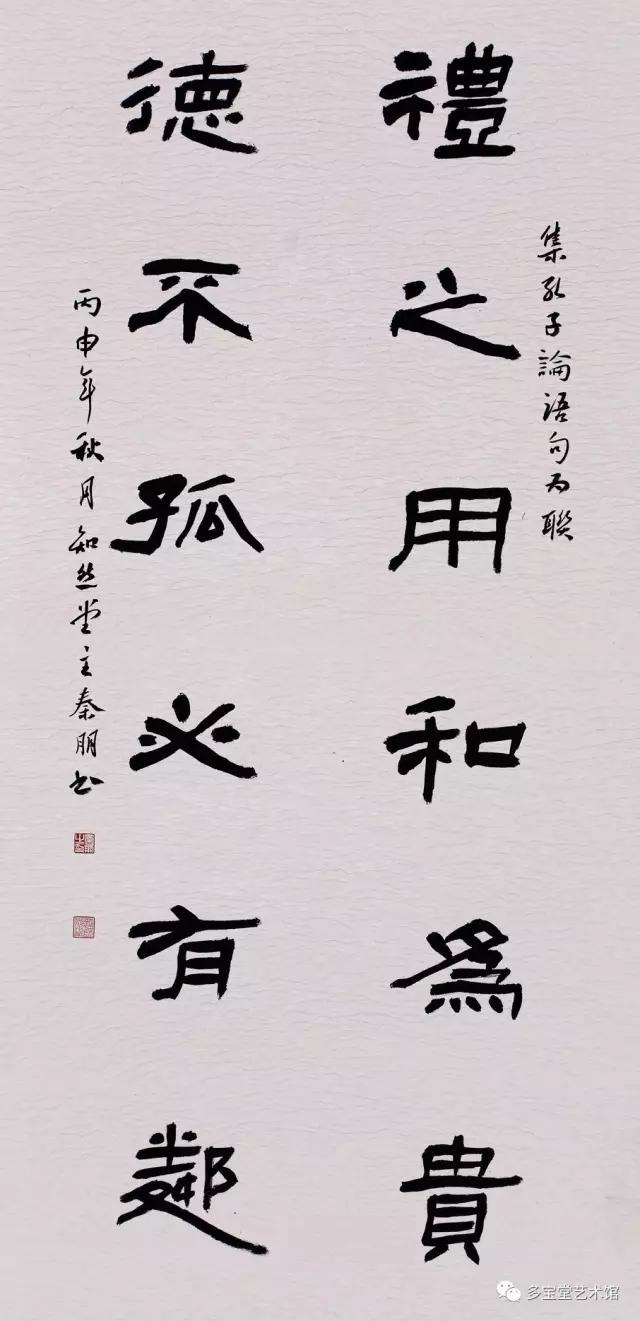 集孔子論語句为聯
禮之用和為貴
德不孤必有鄰
丙申年秋月知然堂主秦朋书
多宝堂艺术馆